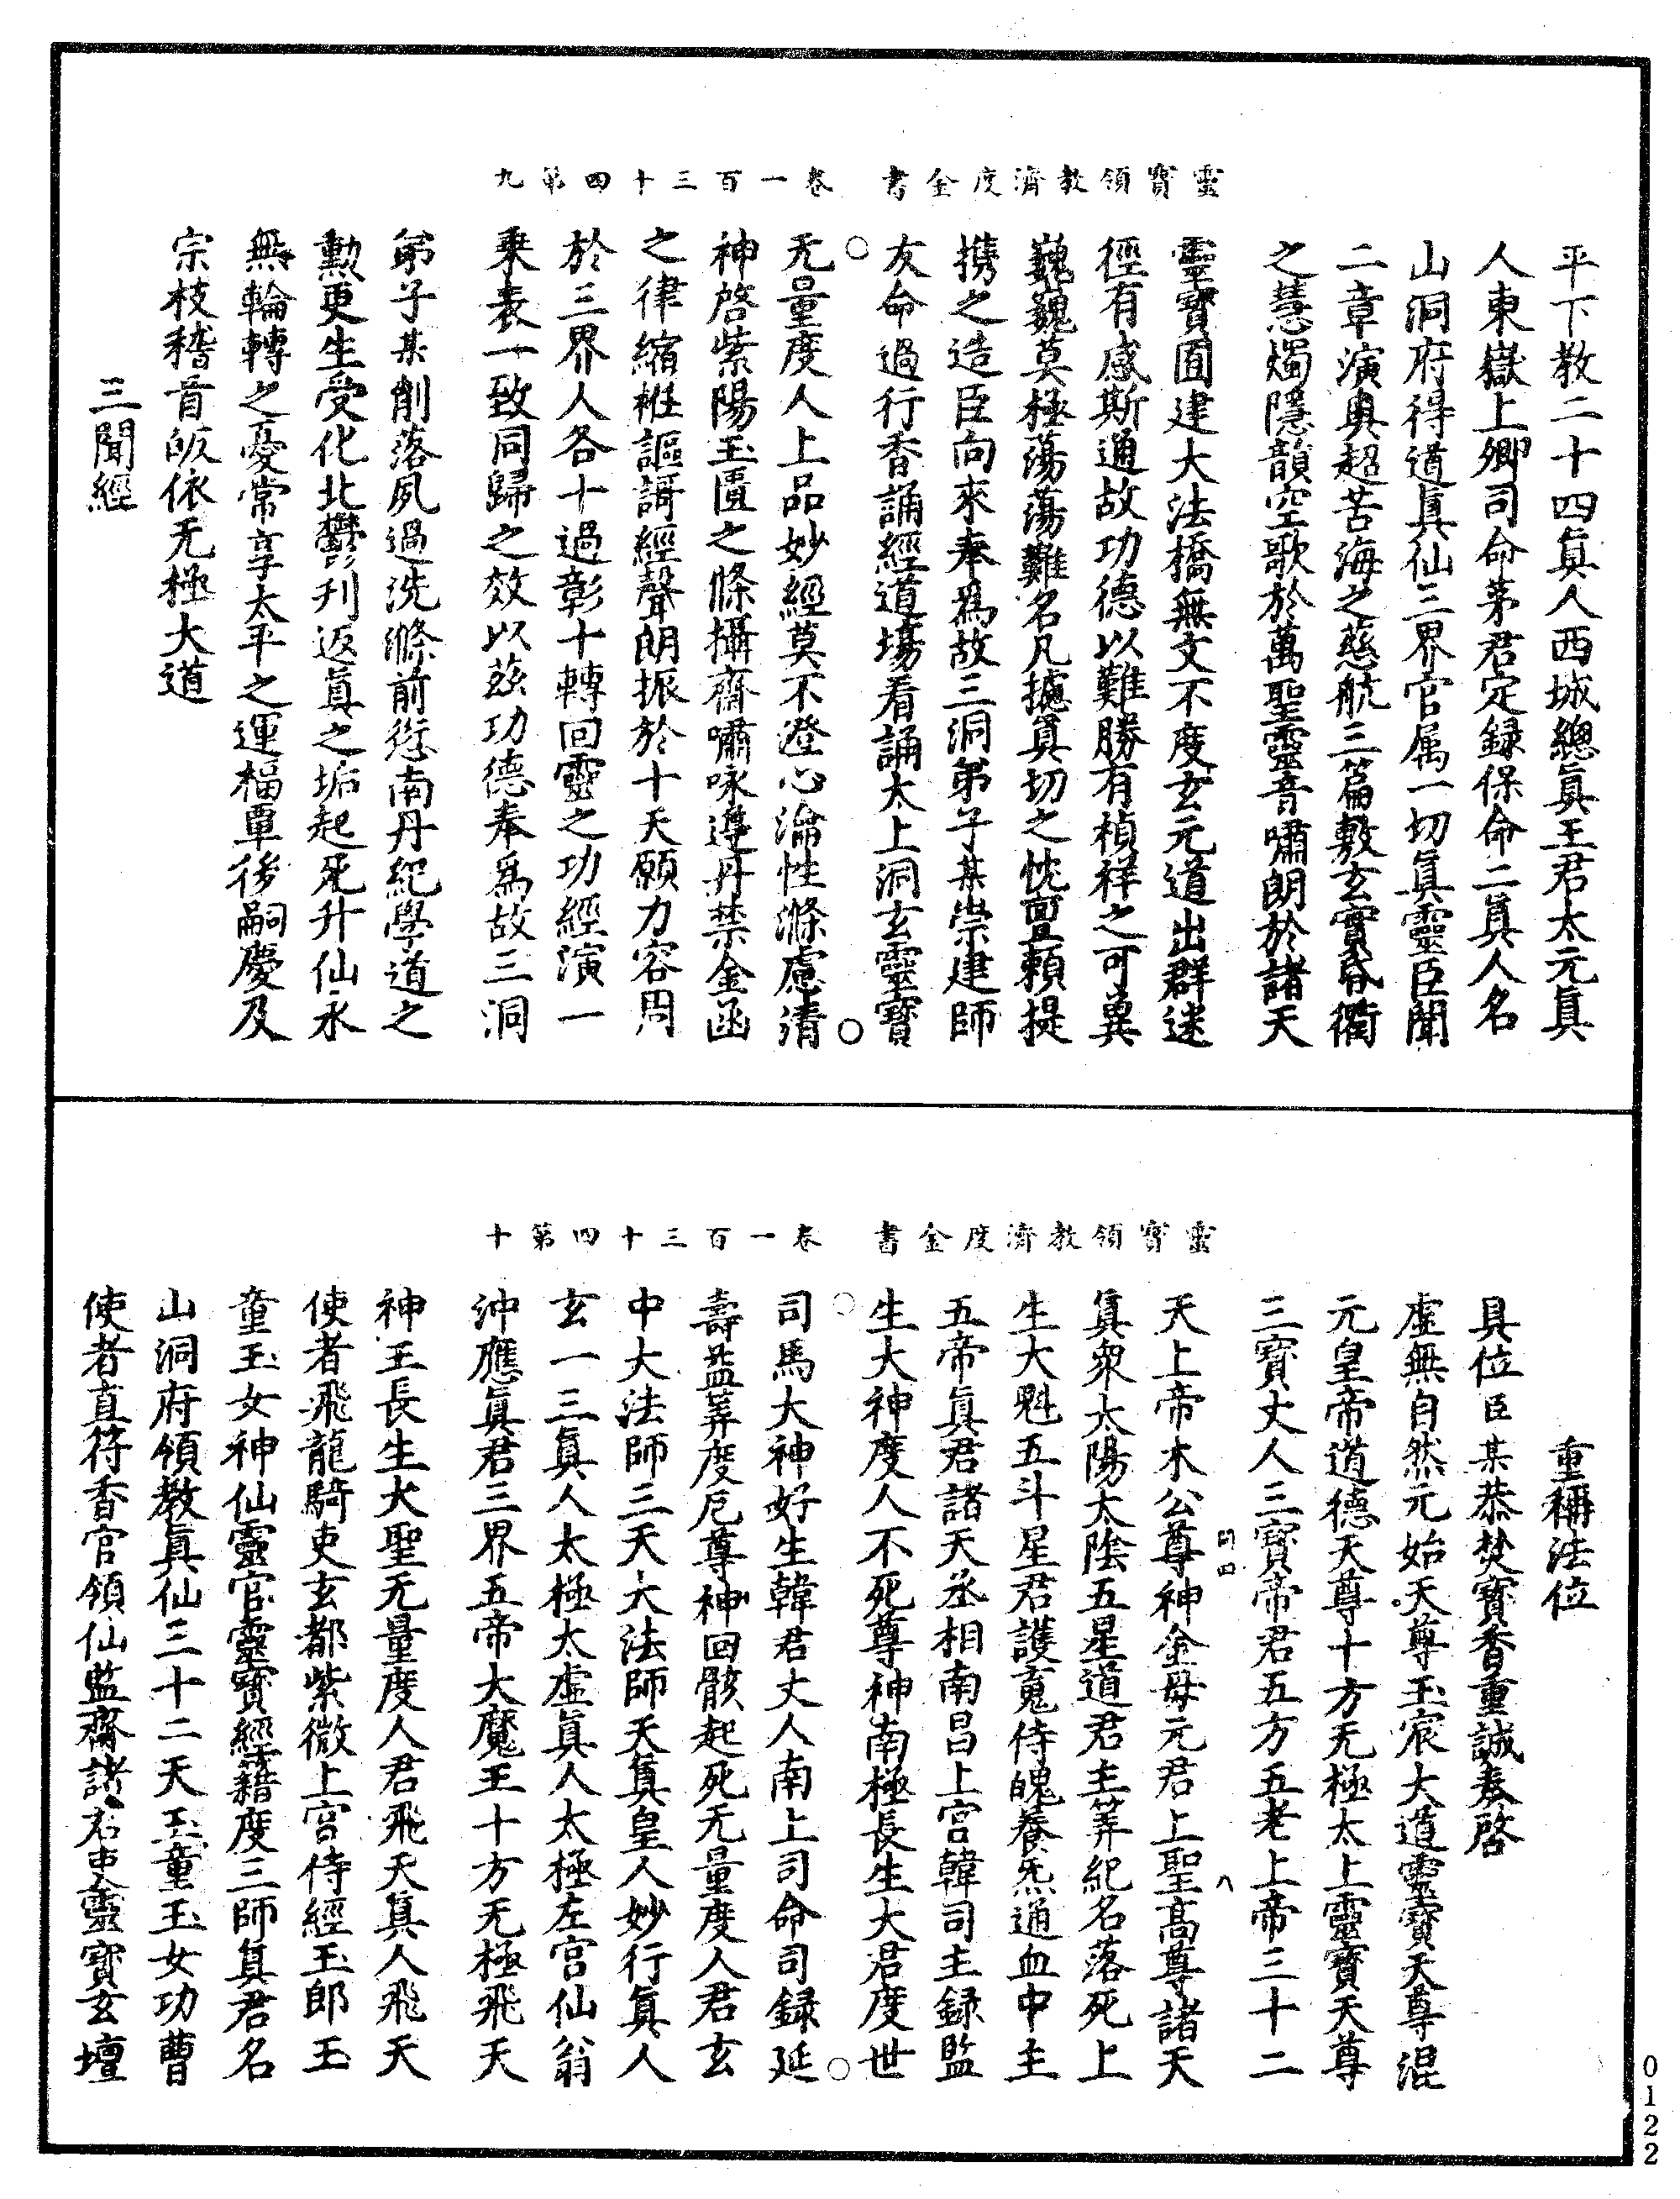 靈寶領教濟度金書 卷一百三十四第九
平下教二十四真人西城總真王君太元真
人東嶽上卿司命茅君定録保命二真人名
山洞府得道真仙三界官属一切真靈臣聞
二章演奥超苦海之慈航三篇敷玄實昏衢
之慧燭隱韻空歌於萬聖靈音嘯朗於諸天
靈寶囿建大法橋無文不度玄元道出群迷
徑有感斯通故功德以難勝有楨祥之可冀
巍巍莫極蕩蕩難名凡攄真切之忱亶頼提
携之造臣向來奉爲故三洞弟子某崇建師
友命過行香誦經道場看誦太上洞玄靈寶
无量度人上品妙經莫不澄心淪性滌慮清
神啓紫陽玉匱之條攝齋嘯咏遵丹禁金函
之律縮袵謳謌經聲朗振於十天願力容周
於三界人各十過彰十轉回靈之功經演一
乗表一致同歸之效以兹功德奉爲故三洞
弟子某削落夙過洗滌前愆南丹紀學道之
勲更生受化北鬱刋返真之垢起死升仙永
無輪轉之憂常享太平之運福覃後嗣慶及
宗枝稽首皈依无極大道
三聞經
靈寶領教濟度金書 卷一百三十四第十
重稱法位
具位臣某恭焚寶香重誠奏啓
虛無自然元始天尊玉宸大道靈寶天尊混
元皇帝道德天尊十方无極太上靈寶天尊
三寶丈人三寶帝君五方五老上帝三十二
天上帝木公尊神金母元君上聖高尊諸天
真衆太陽太陰五星道君主筭紀名落死上
生大魁五斗星君護䰟侍魄養炁通血中主
五帝真君諸天丞相南昌上宮韓司主録監
生大神度人不死尊神南極長生大君度世
司馬大神好生韓君丈人南上司命司録延
壽益筭度厄尊神回骸起死无量度人君玄
中大法師三天大法師天真皇人妙行真人
玄一三真人太極太虛真人太極左宮仙翁
沖應真君三界五帝大魔王十方无極飛天
神王長生大聖无量度人君飛天真人飛天
使者飛龍騎吏玄都紫微上宮侍經玉郎玉
童玉女神仙靈官靈寶經籍度三師真君名
山洞府領教真仙三十二天玉童玉女功曹
使者直符香官領仙監齋諸君吏靈寶玄壇
0122